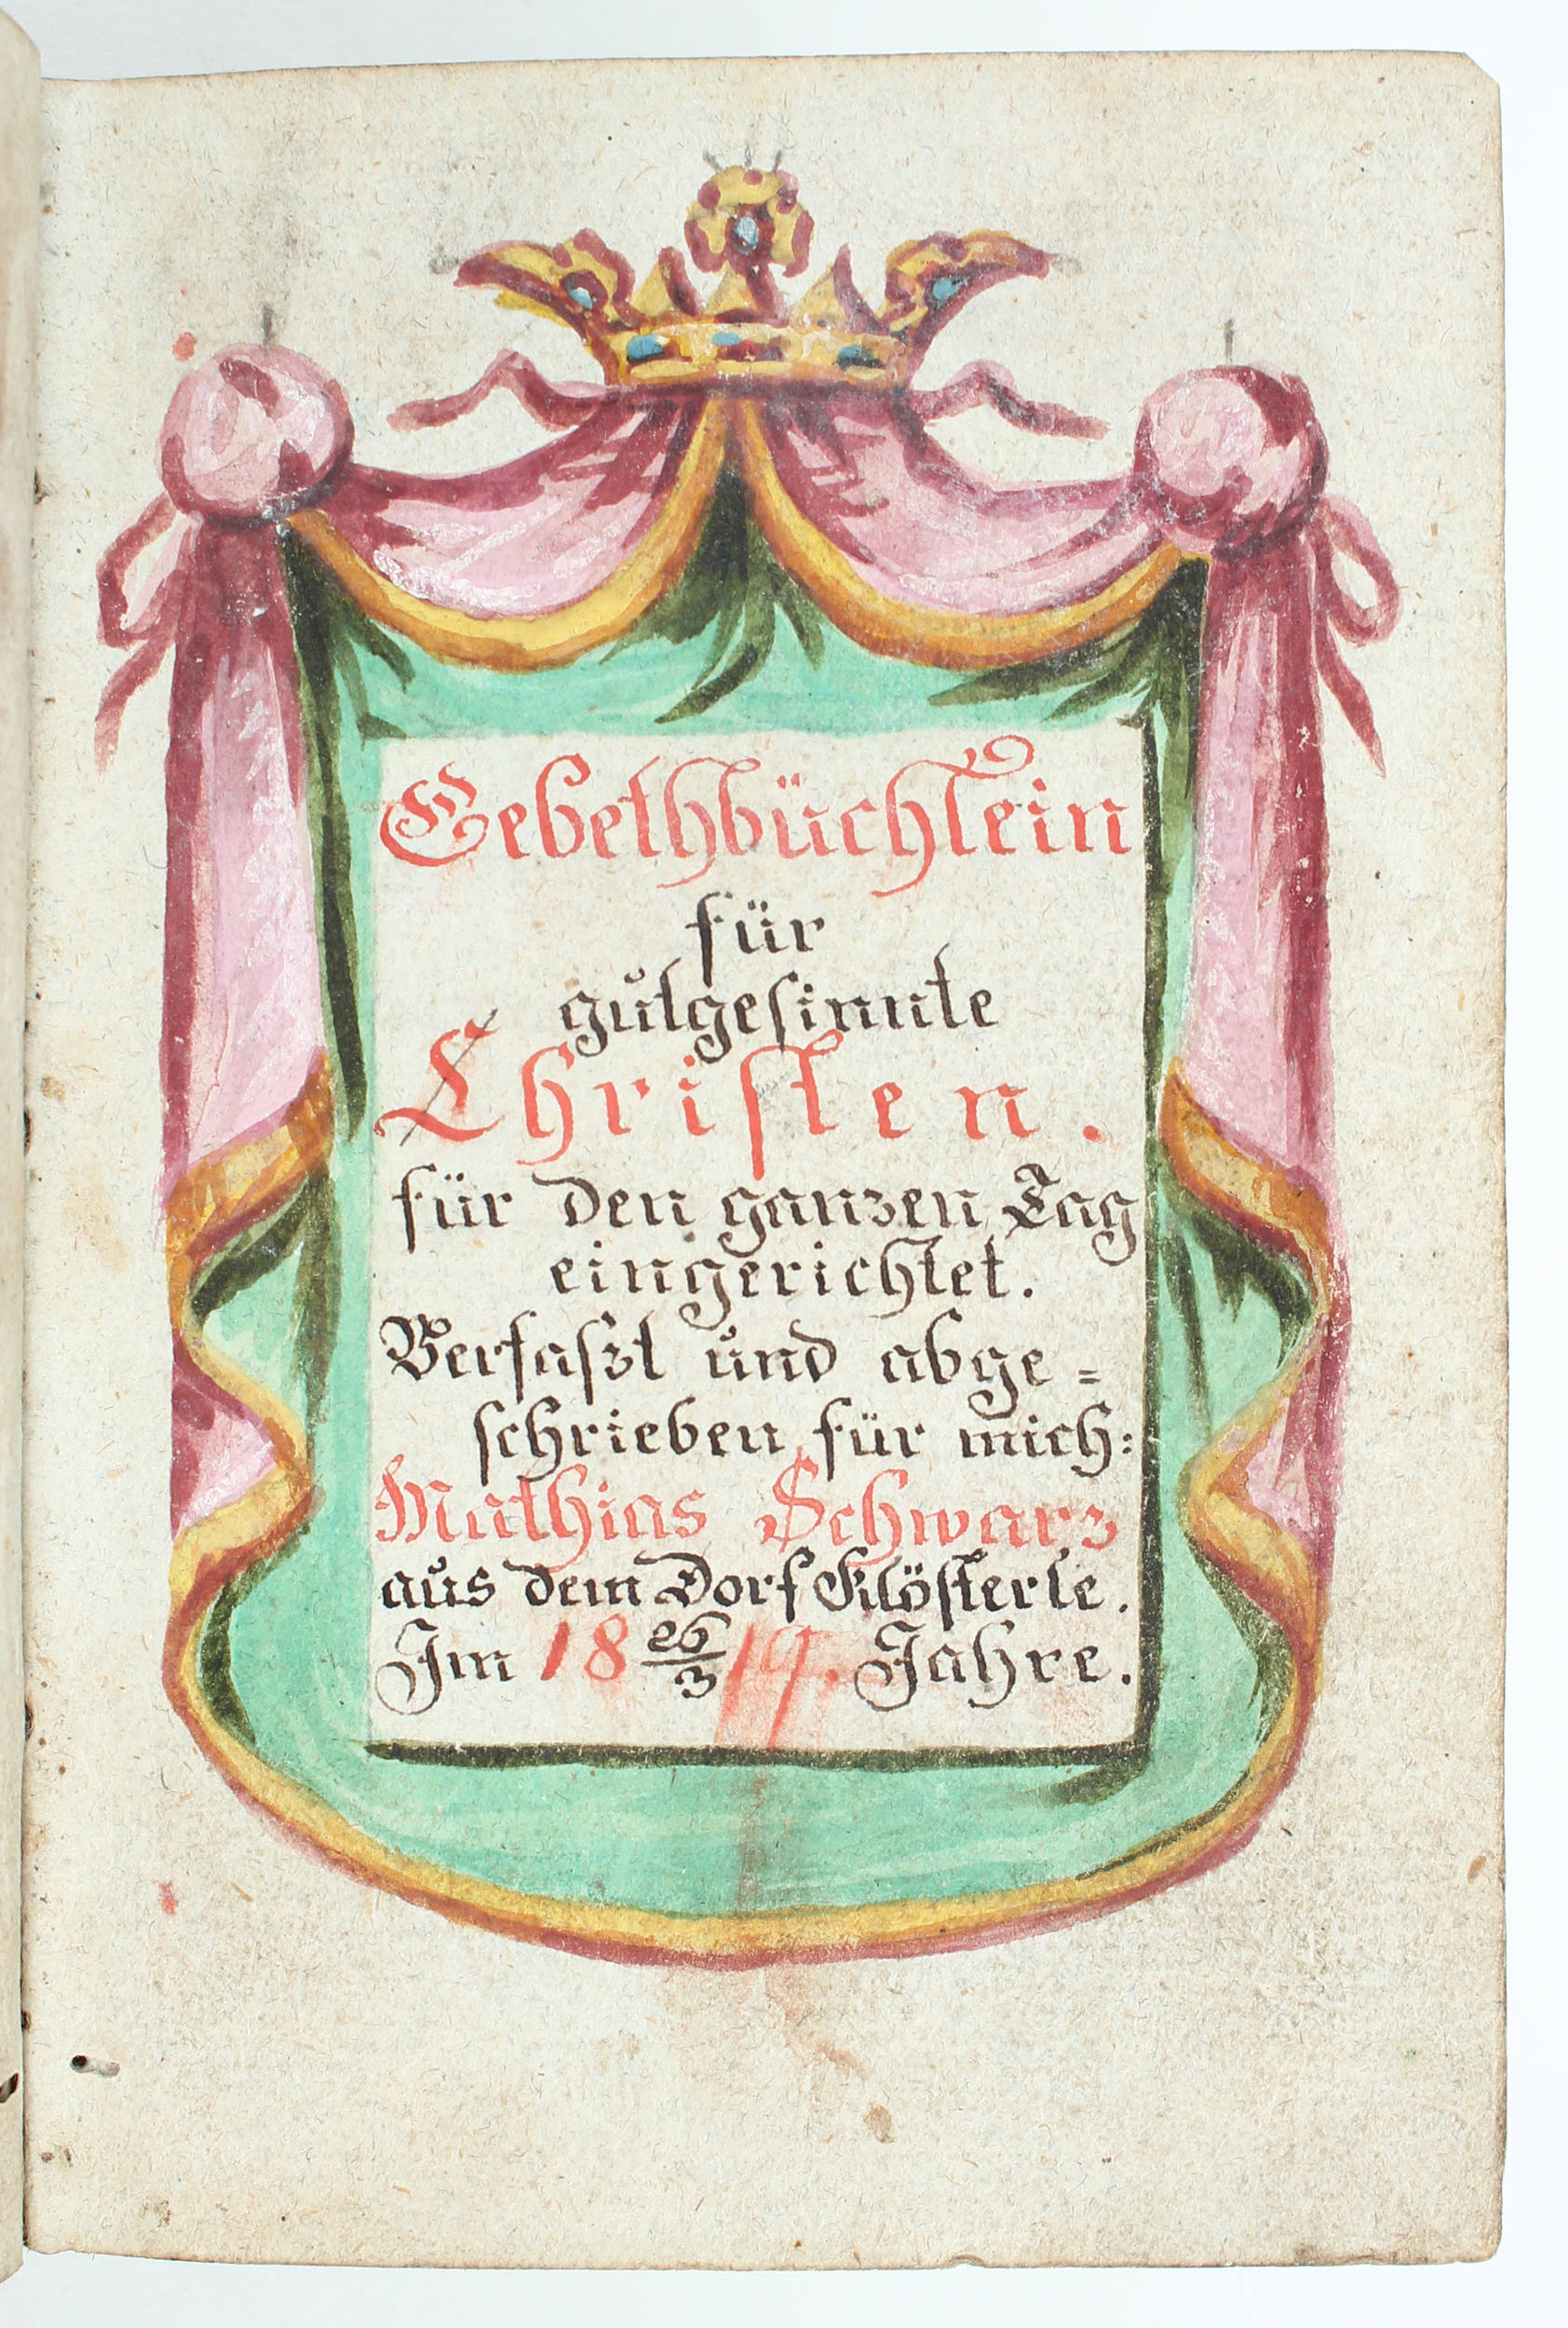 Gebethbüchlein
für
gůtgesinnte
Christen.
für den ganzen Tag
eingerichtet.
Verfaszt ůnd abge=
schrieben für mich:
Mathias Schwarz
aůs dem Dorf Klösterle.
Im 18 26/3 19. Jahre.